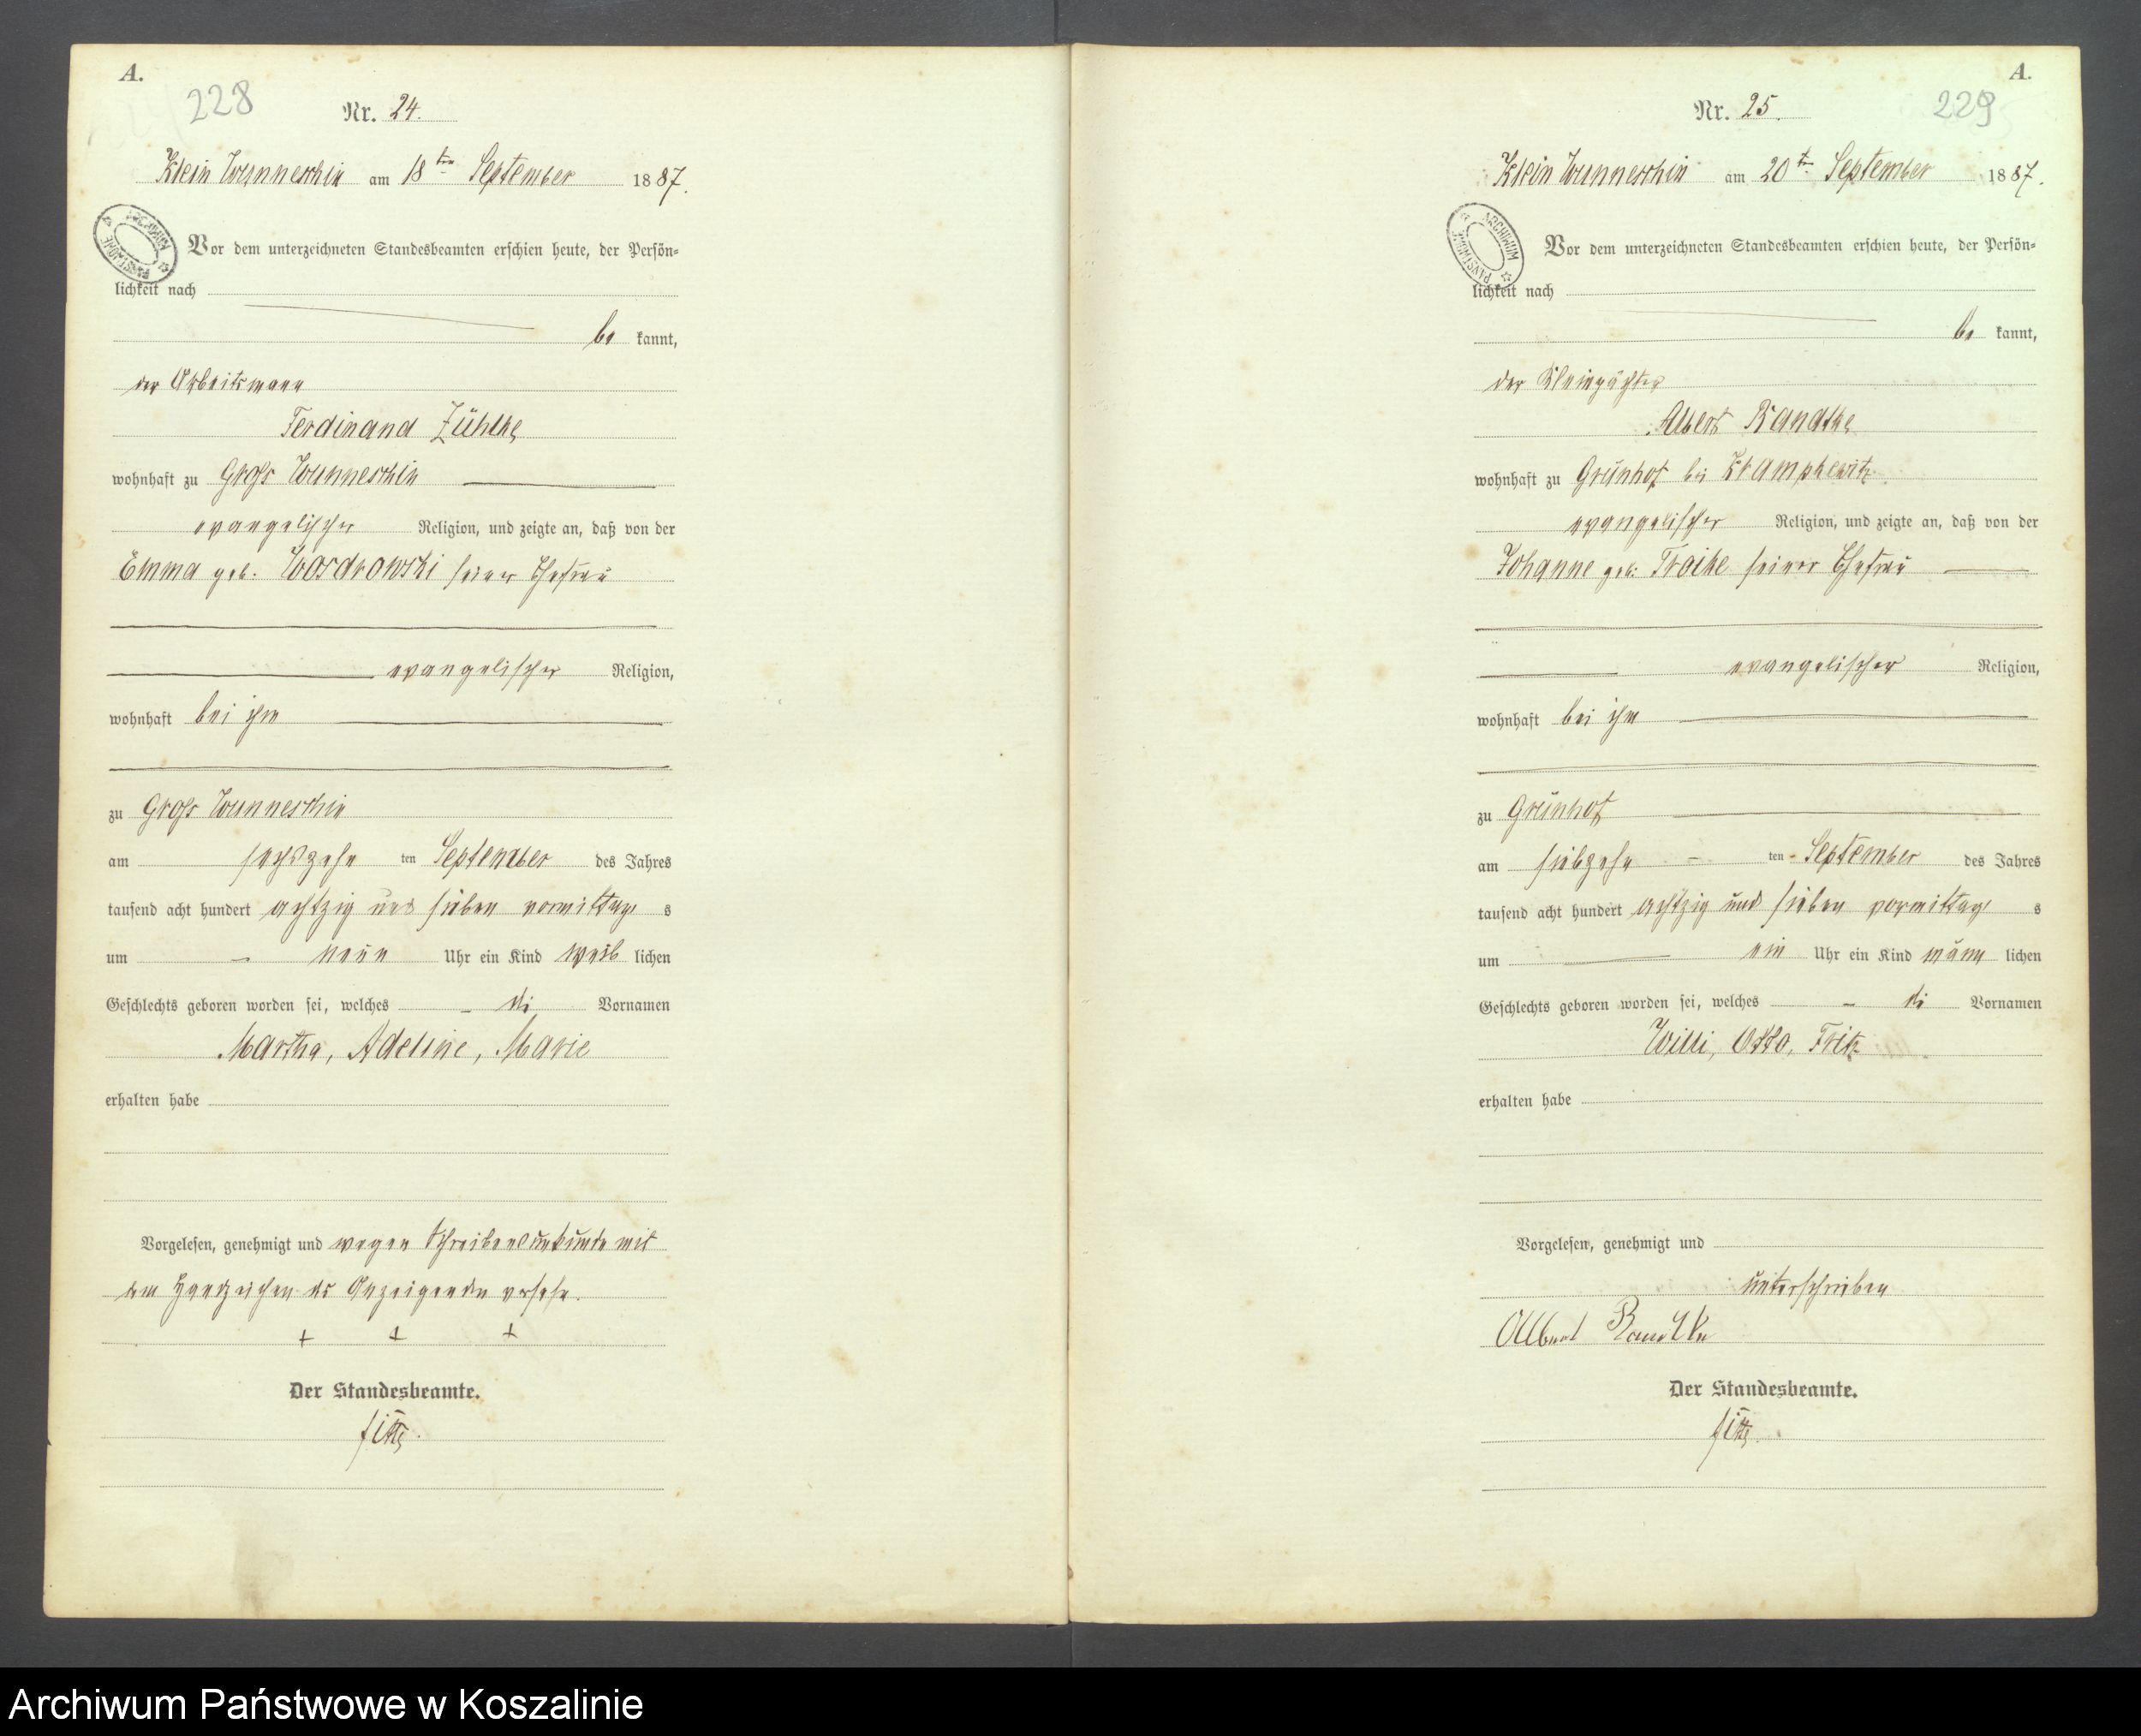 A.
228
Nr. 24.
Klein Wunneschin am 18ten September 1887.
ARCHIWUM PAŃSTWOWE
Vor dem unterzeichneten Standesbeamten erschien heute, der Persön-
lichkeit nach
be kannt,
der Arbeitsmann
Ferdinand Zühlke
wohnhaft zu Groß Wunneschin
evangelischer Religion, und zeigte an, daß von der
Emma geb. Wosdrowski seiner Ehefrau
evangelischer Religion,
wohnhaft bei ihm
zu Groß Wunneschin
am sechszehn ten September des Jahres
tausend acht hundert achtzig und sieben vormittag s
um neun Uhr ein Kind weib lichen
Geschlechts geboren worden sei, welches di Vornamen
Martha, Adeline, Marie
erhalten habe
Vorgelesen, genehmigt und wegen Schreibensunkunde mit
dem Handzeichen des Anzeigenden versehn.
+ + +
Der Standesbeamte.
A.
229
Nr. 25.
Klein Wunneschin am 20ten September 1887.
ARCHIWUM PAŃSTWOWE
Vor dem unterzeichneten Standesbeamten erschien heute, der Persön-
lichkeit nach
be kannt,
der Kleinpächter
Albert Randtke
wohnhaft zu Grünhof bei Krampkewitz
evangelischer Religion, und zeigte an, daß von der
Johanne geb. Troike seiner Ehefrau
evangelischer Religion,
wohnhaft bei ihm
zu Grünhof
am siebzehn ten September des Jahres
tausend acht hundert achtzig und sieben vormittag s
um ein Uhr ein Kind männ lichen
Geschlechts geboren worden sei, welches di Vornamen
Willi, Otto, Fritz
erhalten habe
Vorgelesen, genehmigt und
unterschrieben
Albert Randtke
Der Standesbeamte.
Archiwum Państwowe w Koszalinie